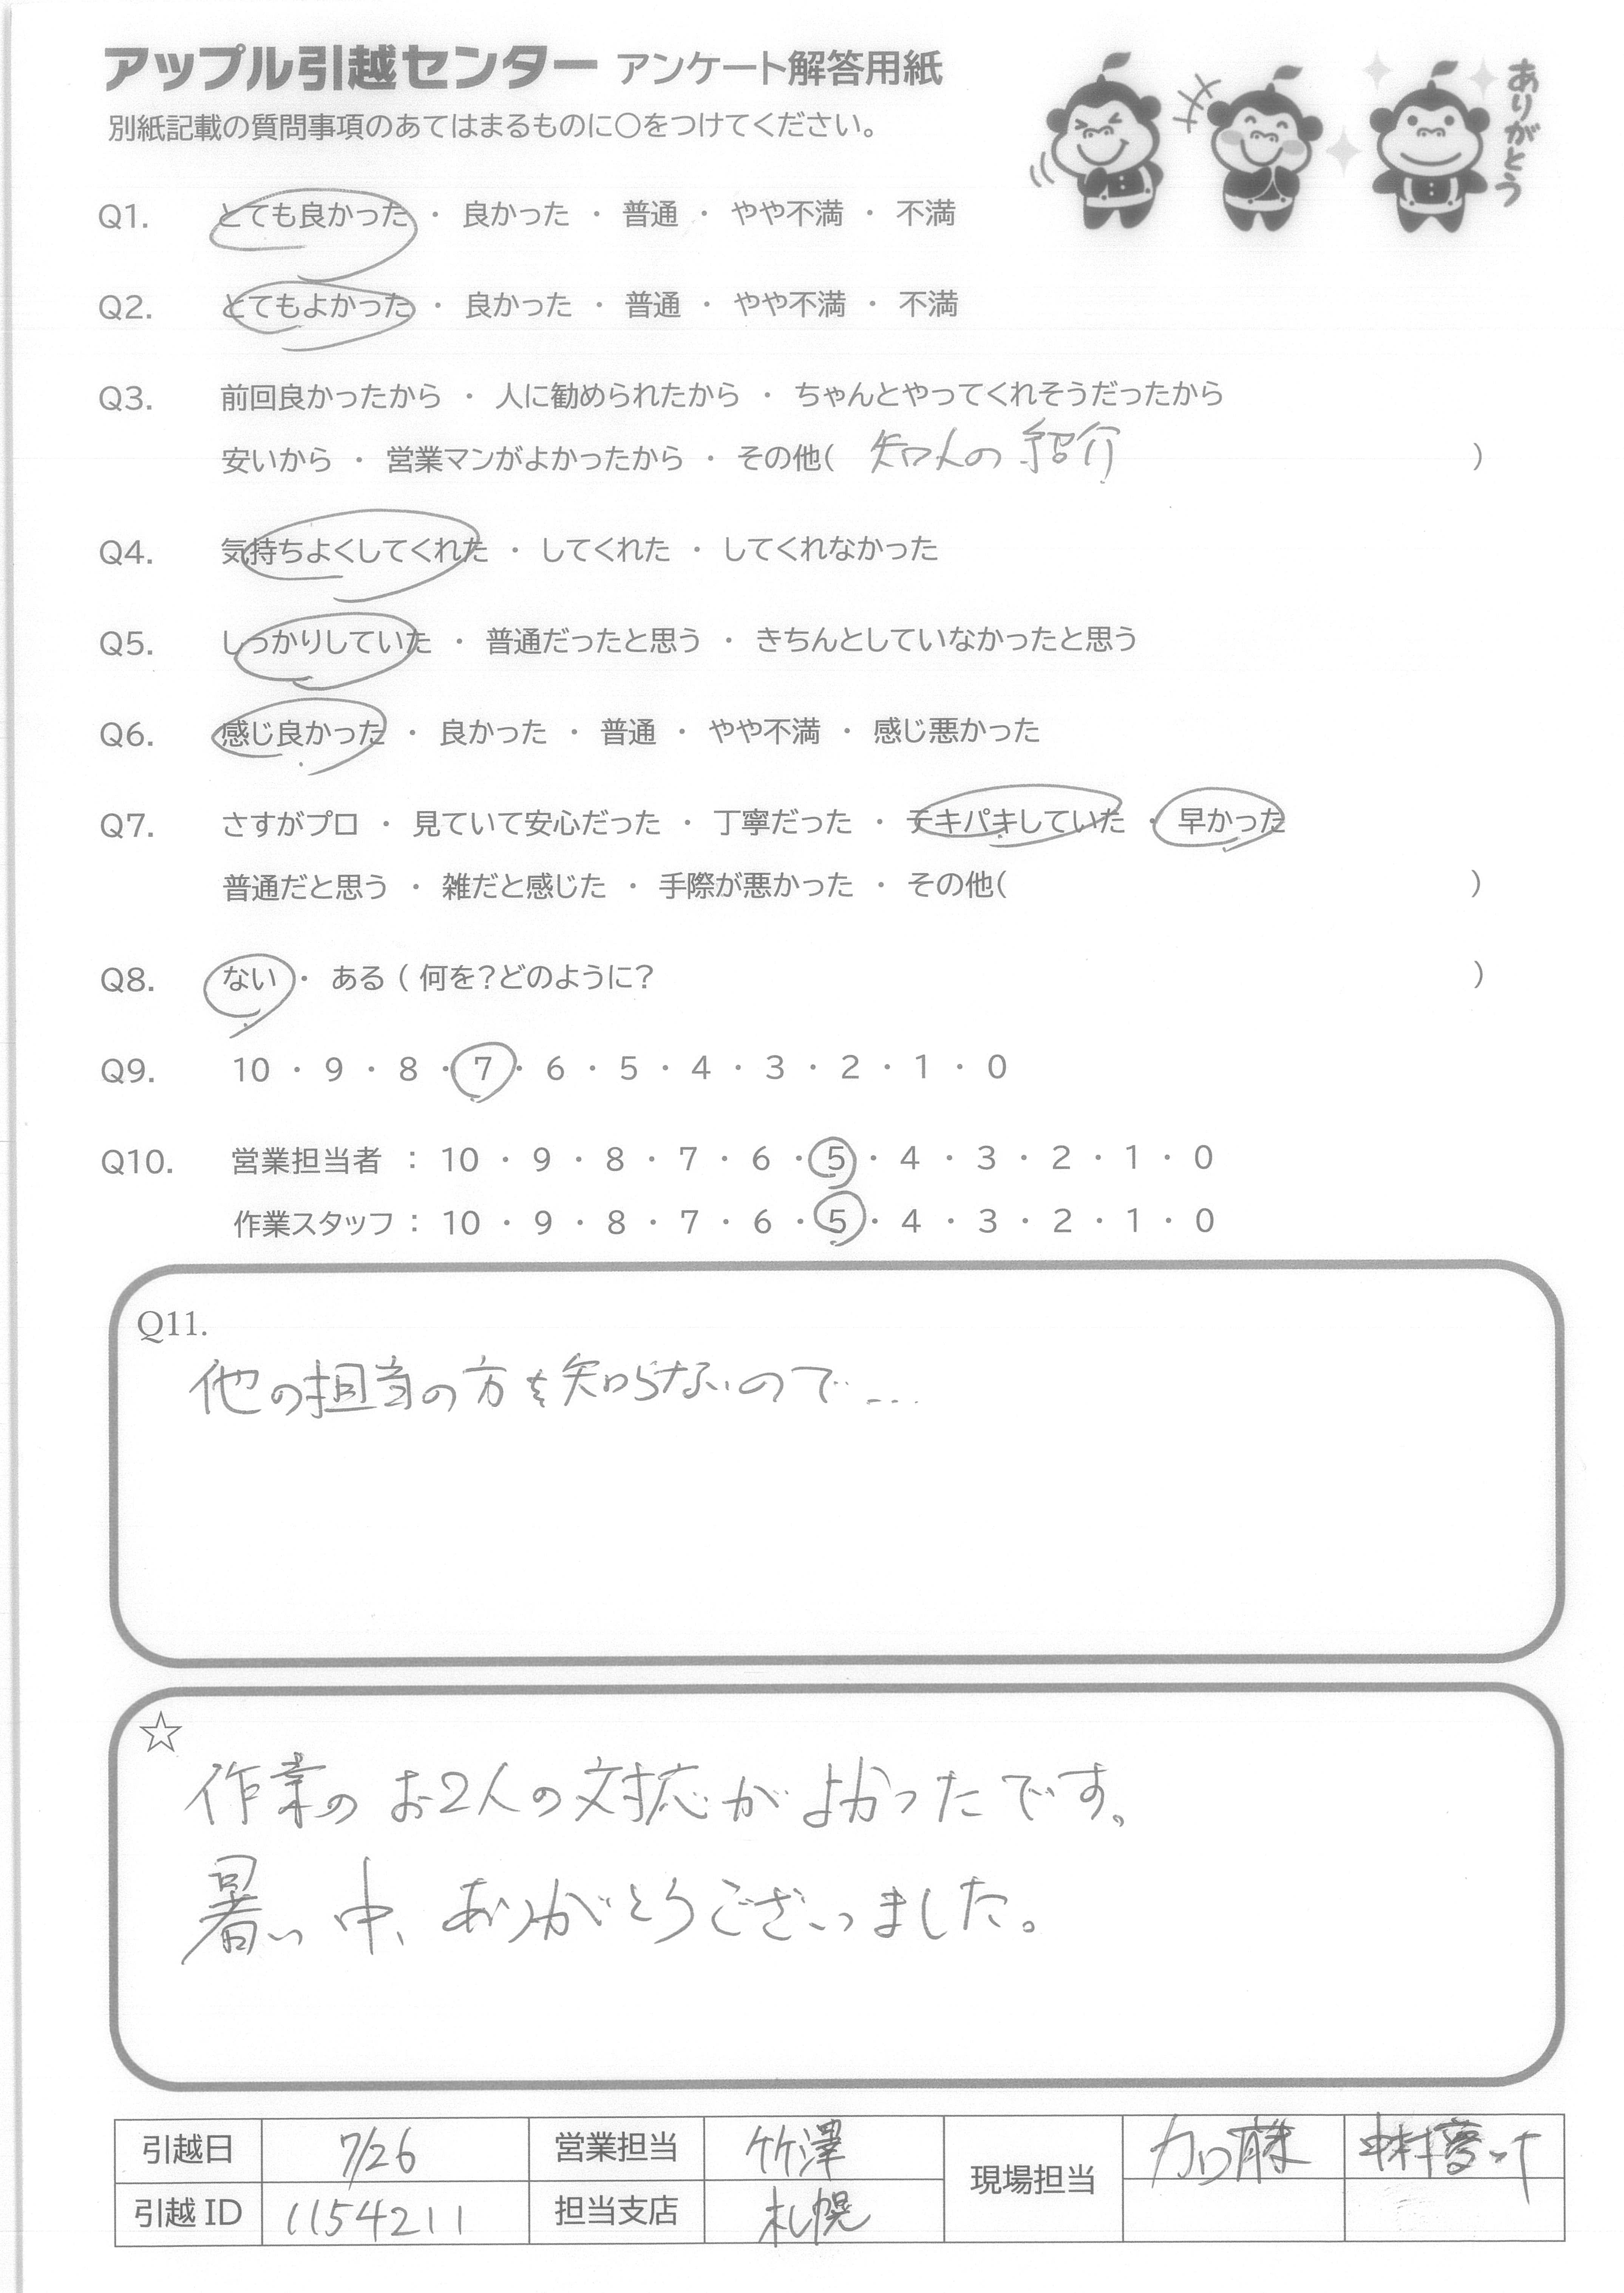 アップル引越センター アンケート解答用紙
ありがとう
別紙記載の質問事項のあてはまるものに○をつけてください。
Q1. とても良かった ・ 良かった ・ 普通 ・ やや不満 ・ 不満
Q2. とてもよかった ・ 良かった ・ 普通 ・ やや不満 ・ 不満
Q3. 前回良かったから ・ 人に勧められたから ・ ちゃんとやってくれそうだったから
安いから ・ 営業マンがよかったから ・ その他( 知人の紹介 )
Q4. 気持ちよくしてくれた ・ してくれた ・ してくれなかった
Q5. しっかりしていた ・ 普通だったと思う ・ きちんとしていなかったと思う
Q6. 感じ良かった ・ 良かった ・ 普通 ・ やや不満 ・ 感じ悪かった
Q7. さすがプロ ・ 見ていて安心だった ・ 丁寧だった ・ テキパキしていた ・ 早かった
普通だと思う ・ 雑だと感じた ・ 手際が悪かった ・ その他( )
Q8. ない ・ ある ( 何を?どのように? )
Q9. 10 ・ 9 ・ 8 ・ 7 ・ 6 ・ 5 ・ 4 ・ 3 ・ 2 ・ 1 ・ 0
Q10. 営業担当者 : 10 ・ 9 ・ 8 ・ 7 ・ 6 ・ 5 ・ 4 ・ 3 ・ 2 ・ 1 ・ 0
作業スタッフ : 10 ・ 9 ・ 8 ・ 7 ・ 6 ・ 5 ・ 4 ・ 3 ・ 2 ・ 1 ・ 0
Q11.
他の担当の方を知らないので...
☆
作業のお2人の対応がよかったです。
暑い中、ありがとうございました。
引越日 7/26 営業担当 竹澤 現場担当 加藤 中村
引越ID 1154211 担当支店 札幌